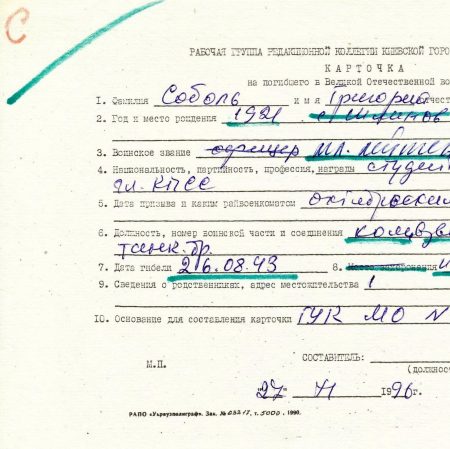 С
РАБОЧАЯ ГРУППА РЕДАКЦИОННОЙ КОЛЛЕГИИ КИЕВСКОЙ ГОРО
КАРТОЧКА
на погибшего в Великой Отечественной во
1. Фамилия Соболь имя Григорий отчест
2. Год и место рождения 1921
3. Воинское звание офицер мл. лейтен
4. Национальность, партийность, профессия, награды студен
чл. КПСС
5. Дата призыва и каким райвоенкоматом октябрьским
6. Должность, номер воиновой части и соединения ком. взв
танк. бр.
7. Дата гибели 26.08.43 8. Место захоронения
9. Сведения о родственниках, адрес местожительства
10. Основание для составления карточки ГУК МО N
М.П. СОСТАВИТЕЛЬ:
(должнос
"27" 1996г.
РАПО «Укрвузполиграф». Зак. т. 5000. 1990.